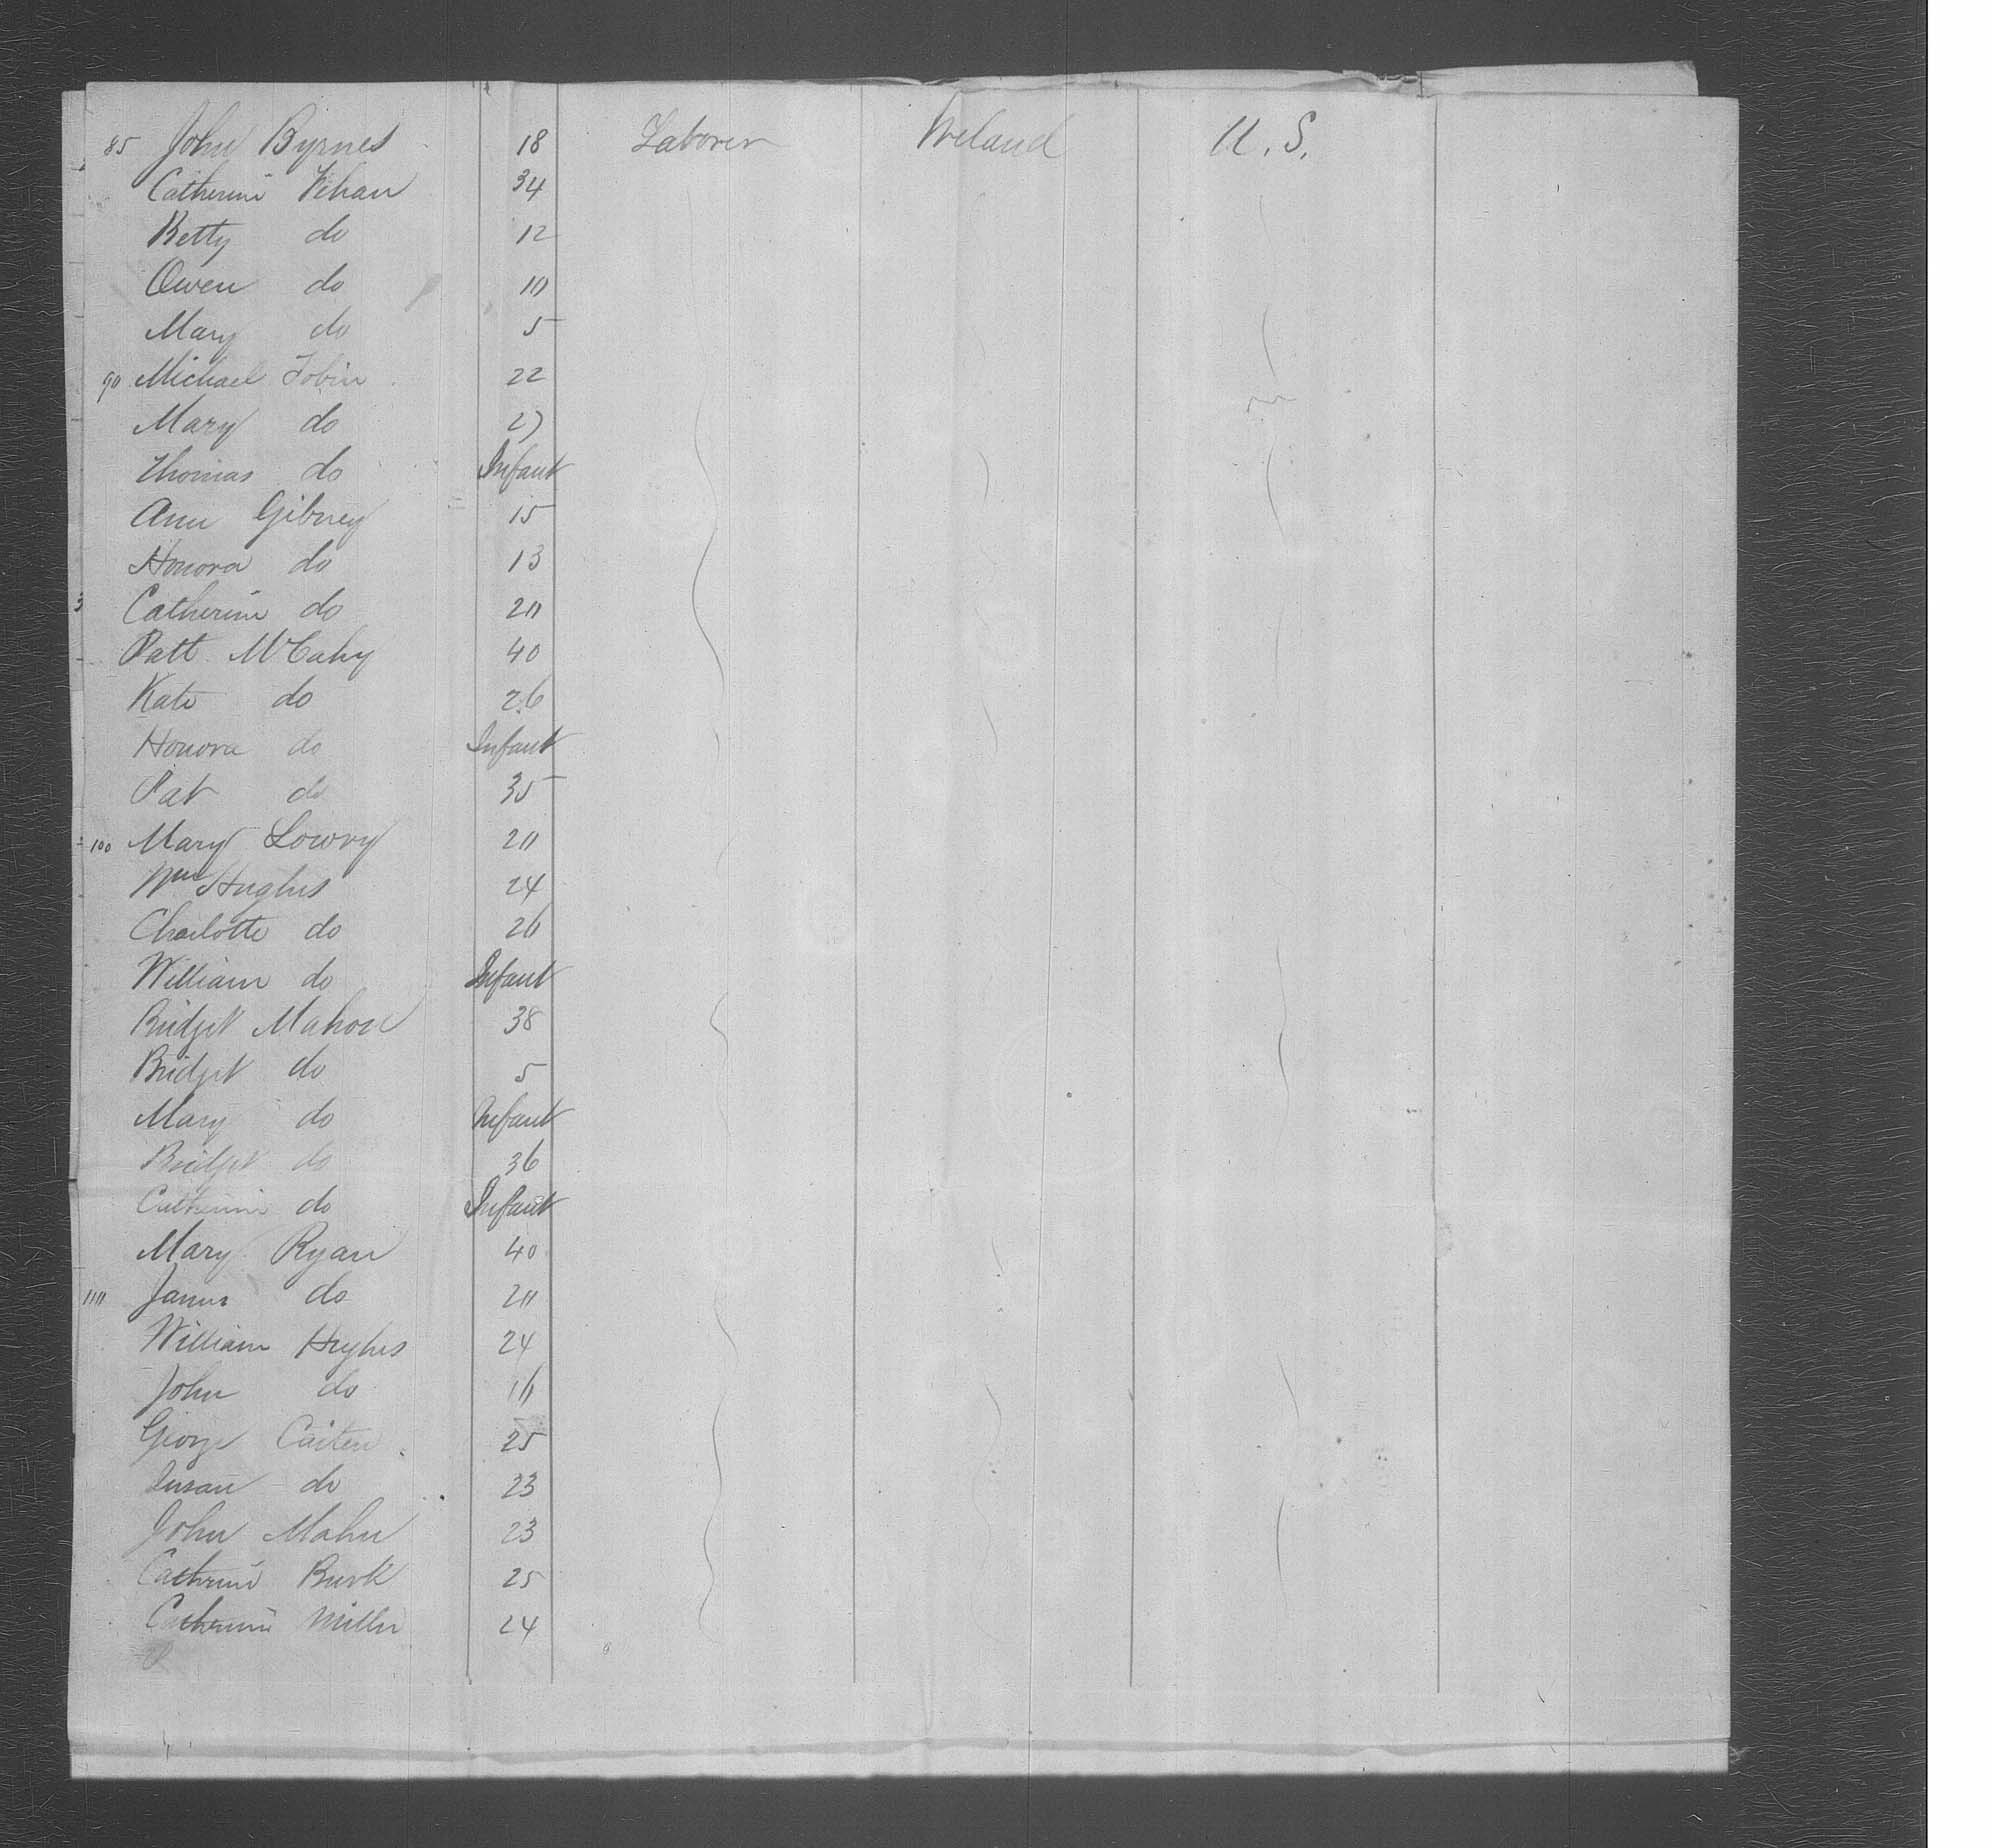 85 John Byrnes 18 Laborer Ireland U.S.
Catherine Vehan 34
Betty do 12
Owen do 10
Mary do 5
90 Michael Tobin 22
Mary do 27
Thomas do Infant
Ann Gibney 15
Honora do 13
Catherine do 20
Patt McCahy 40
Kate do 26
Honora do Infant
Pat do 35
100 Mary Lowry 20
Wm Hughes 24
Charlotte do 26
William do Infant
Bridget Mahon 38
Bridget do 5
Mary do Infant
Bridget do 36
Catherine do Infant
Mary Ryan 40
110 James do 20
William Hughes 24
John do
George 25
Susan do 23
John Mahn 23
Cathrine Burk 25
Catherine Miller 24